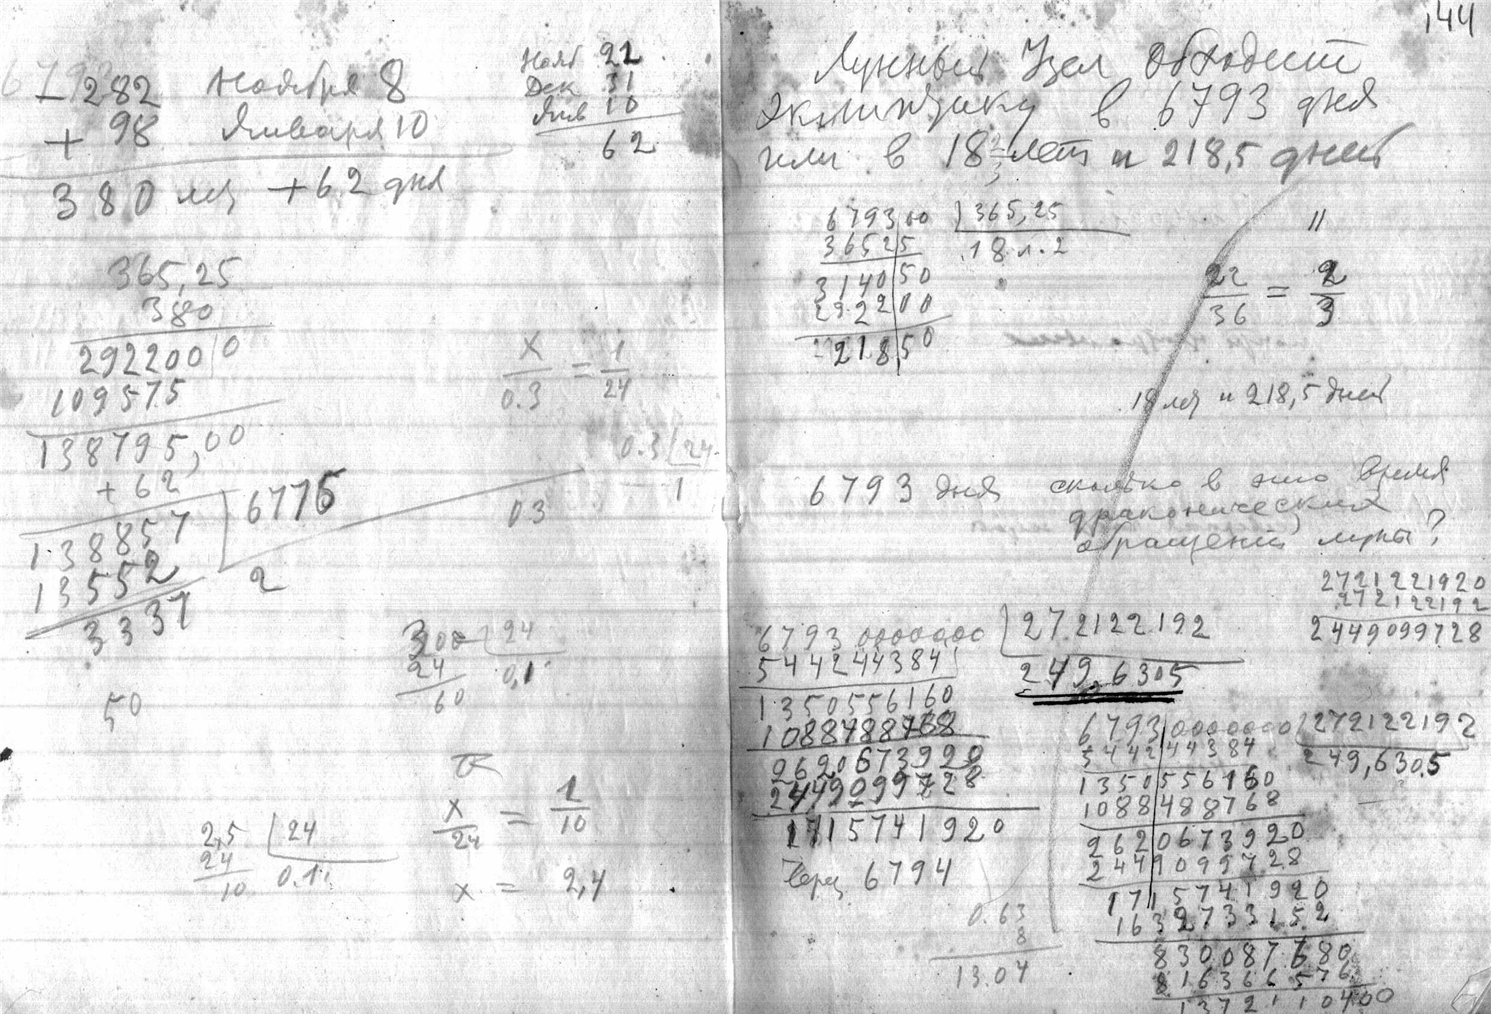 - 282 Ноября 8
+ 98 Января 10
380 лет +62 дня
Нояб 22
Дек 31
Янв 10
62
365,25
380
292200 0
109575
138795,00
+ 62
138857 6776
13552 2
3337
50
x/0.3 = 1/24
0.3 24
1
03
300 24
24 0,1
60
x/24 = 1/10
x = 2,4
2,5 24
24 0.1
10
144
Лунный Узел обходит
эклиптику в 6793 дня
или в 18 лет и 218,5 дней
679300 365,25
36525 18 л. 2
314050
292200
21850
"
22/36 = 2/3
18 лет и 218,5 дней
6793 дня сколько в это время
драконических
обращений луны?
2721221920
272122192
2449099728
6793 0000000 27.2122192
544244384 249,6305
1350556160
1088488768
2620673920
2449099728
1715741920
Через 6794
0.63
8
13.04
6793 0000000 272122192
544244384 249,6305
1350556160
1088488768
2620673920
2449099728
1715741920
1632733152
830087680
816366576
1372110400